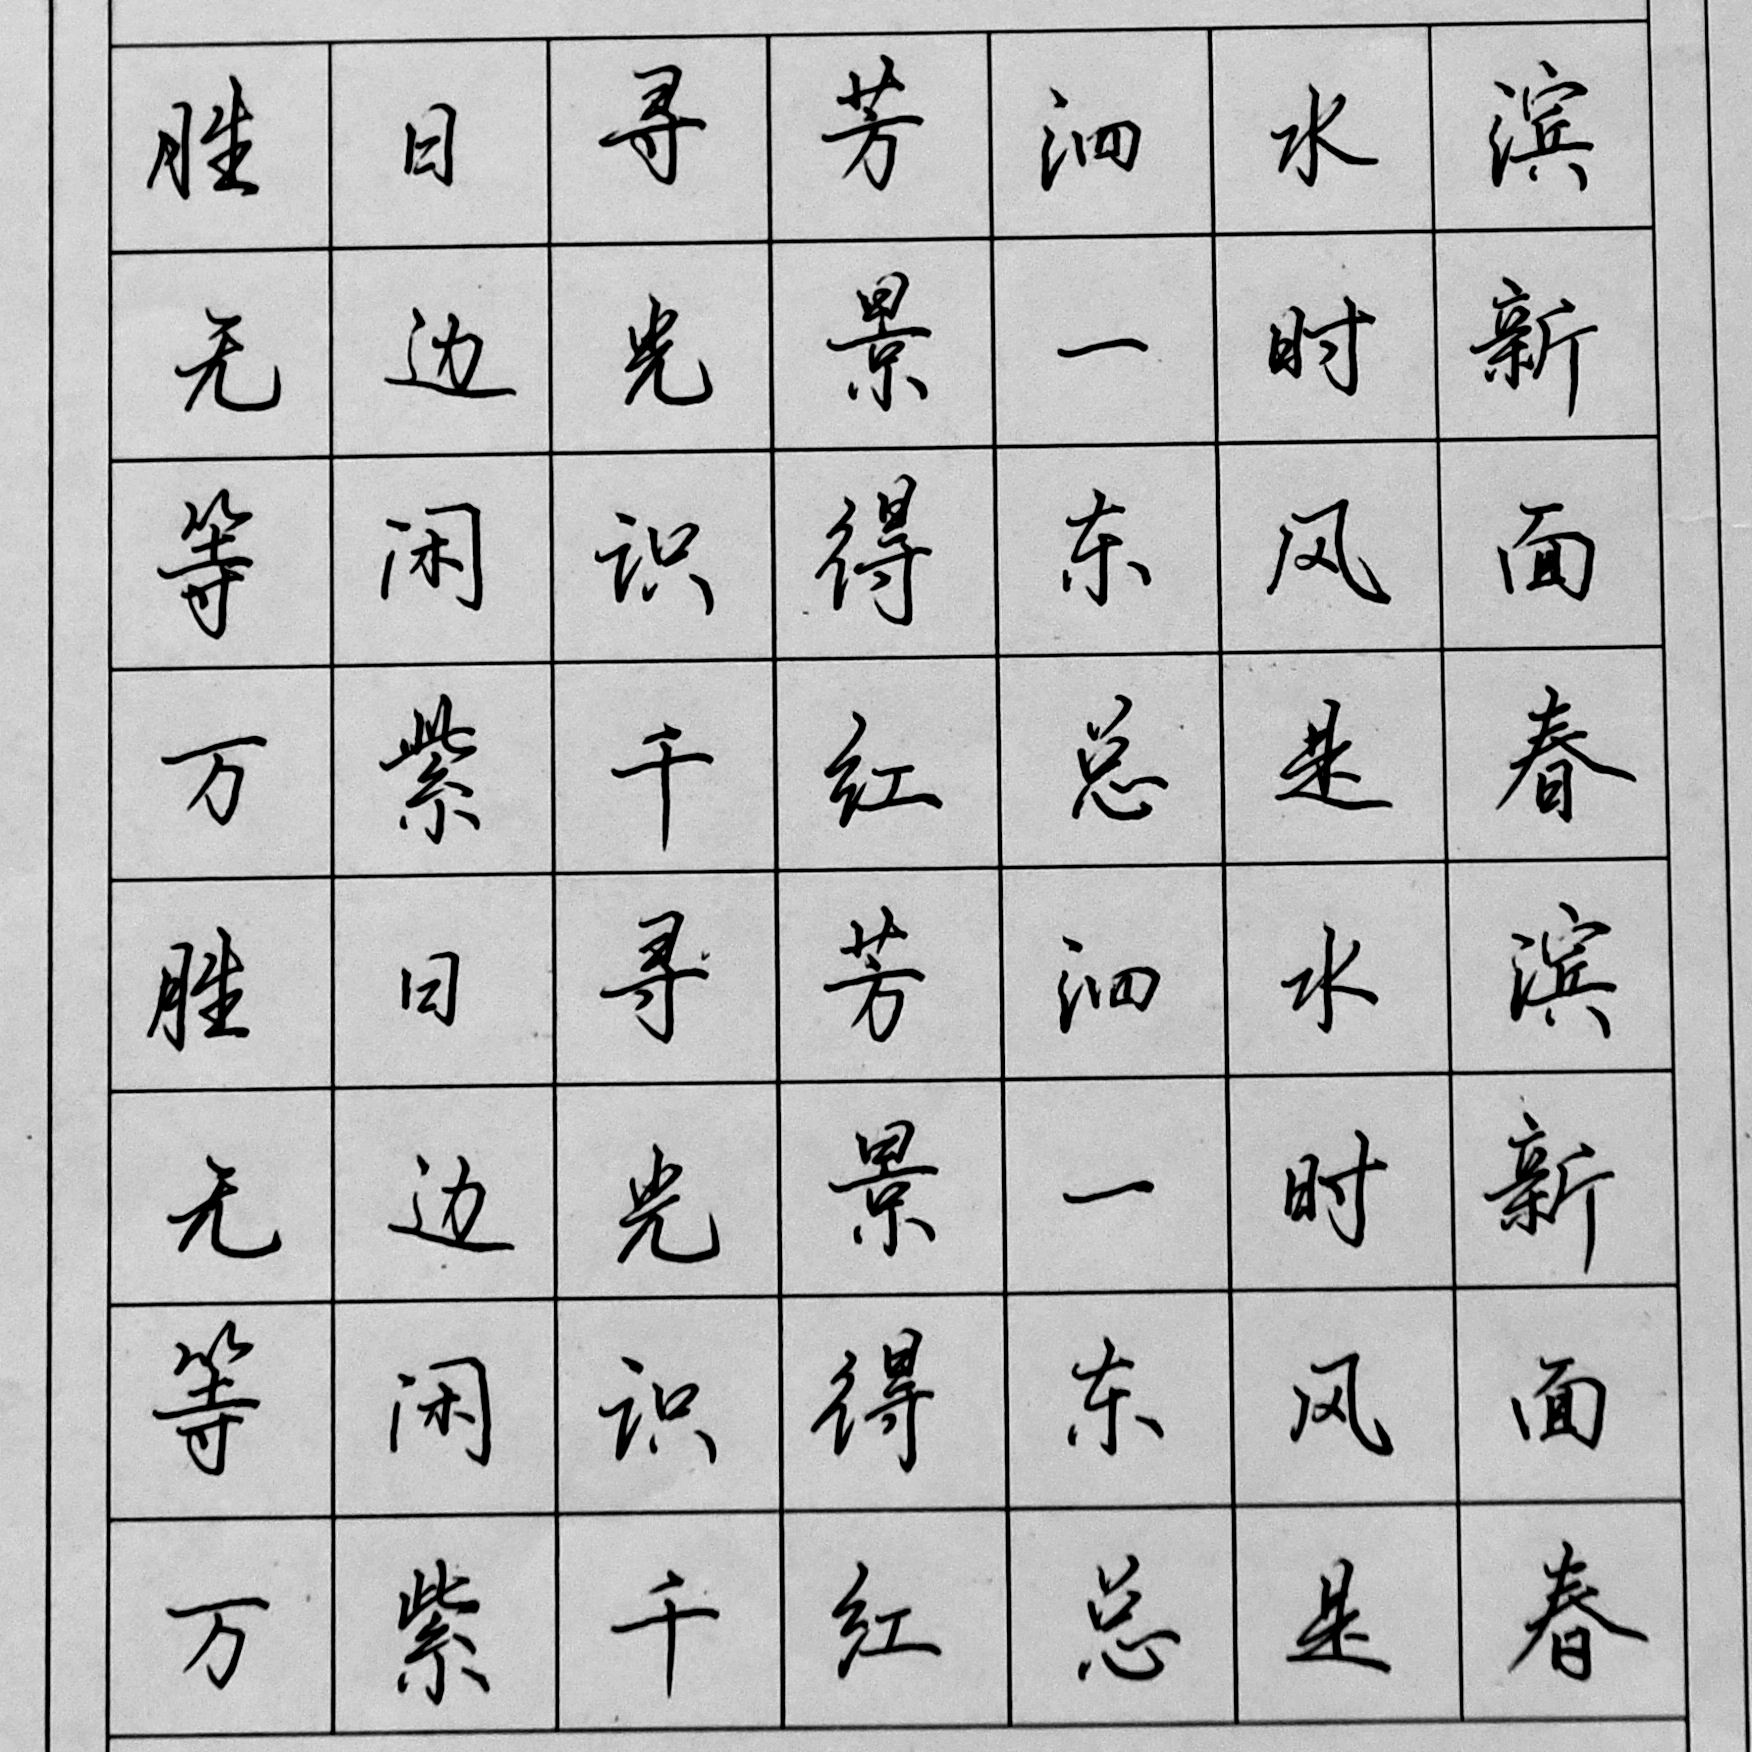 胜日寻芳泗水滨
无边光景一时新
等闲识得东风面
万紫千红总是春
胜日寻芳泗水滨
无边光景一时新
等闲识得东风面
万紫千红总是春